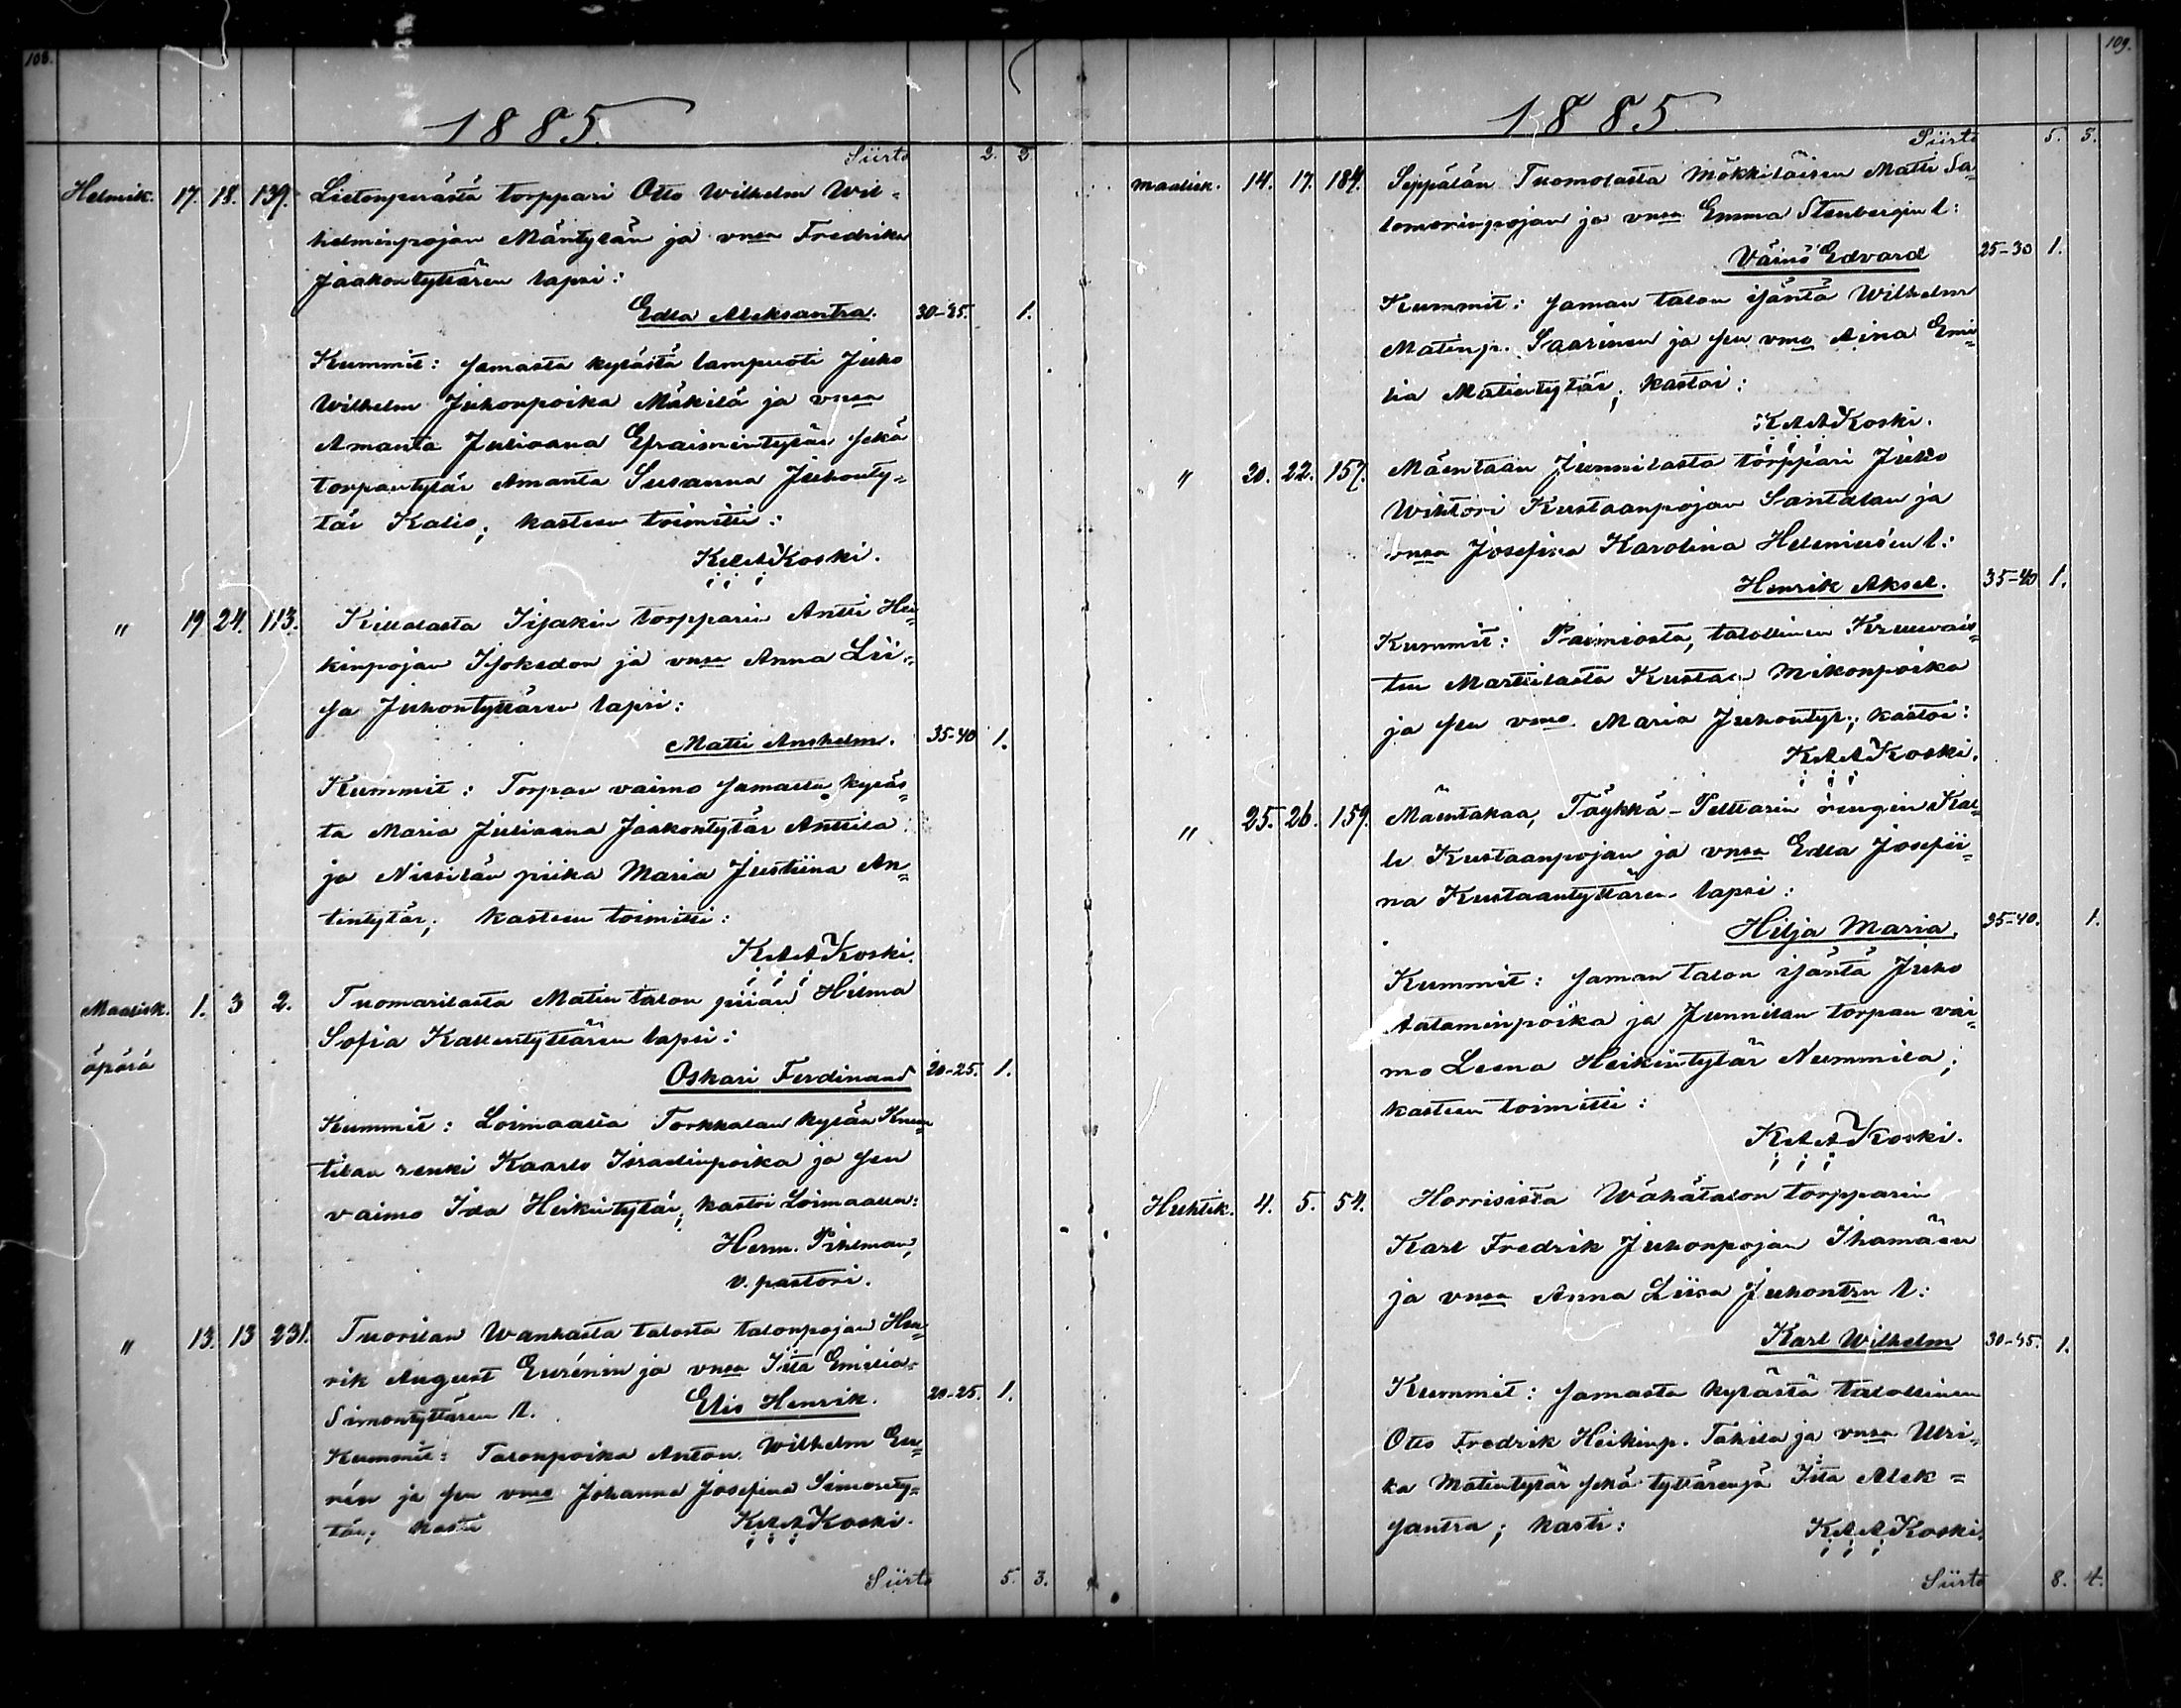 108.
1885.
Siirto 2. 2
Helmik. 17. 18. 139. Lietenperästä torppari Otto Wilhelm Wil=
helminpojan Mäntylän ja vnsa Fredrika
Jaakontyttären lapsi:
Edla Aleksantra. 30-35. 1.
Kummit: samasta kylästä lampuoti Juho
Wilhelm Juhonpoika Mäkilä ja vnsa
Amanta Juliaana Efraimintytär sekä
torpantytär Amanta Susanna Juhonty=
tär Kalio; kasteen toimitti:
K.A.A. Koski.
" 19 24. 113. Killalasta Iisakin torpparin Antti Hei=
kinpojan Isokedon ja vnsa Anna Lii=
sa Juhontyttären lapsi:
Matti Anshelm. 35-40 1.
Kummit: Torpan vaimo samasta kyläs=
tä Maria Juliaana Jaakontytär Anttila
ja Nissilän piika Maria Justiina An=
tintytär; kasteen toimitti:
K.A.A. Koski.
Maalisk. 1. 3 2. Tuomarilasta Matin talon piian Hilma
Sofia Kallentyttären lapsi:
äpärä
Oskari Ferdinand 20-25. 1.
Kummit: Loimaalta Torkkalan kylän Knuu
tilan renki Kaarlo Israelinpoika ja sen
vaimo Ida Heikintytär; kastoi Loimaalla:
Herm. Pihlman,
v. pastori.
" 13. 13 231. Tuorilan Wanhasta talosta talonpojan Hen=
rik August Eurénin ja vnsa Iita Emilia
Simontyttären l. Elis Henrik. 20-25. 1.
Kummit: Talonpoika Anton Wilhelm Eu=
rén ja sen vmo Johanna Josefina Simonty=
tär; kasti K.A.A. Koski.
Siirto 5. 3.
109.
1885.
Siirto 5. 3.
Maalisk. 14. 17. 184. Seppälän Tuomolasta Mökkiläisen Matti Sa=
lomoninpojan ja vnsa Emma Stenbergin l:
Väinö Edvard 25-30 1.
Kummit: saman talon isäntä Wilhelm
Matinp. Saarinen ja sen vmo Aina Emi=
lia Matintytär; kastoi:
K.A.A. Koski.
" 20. 22. 157. Mäentaan Junnilasta torppari Juho
Wihtori Kustaanpojan Santalan ja
vnsa Josefina Karolina Heleniusén l:
Henrik Aksel. 35-40 1.
Kummit: Paimiosta, talollinen Kruuvais=
ten Marttilasta Kustaa Mikonpoika
ja sen vmo Maria Juhontyt.; kastoi:
K.A.A. Koski.
" 25. 26. 159. Mäentakaa, Täykkä-Pelttarin rengin Kal=
le Kustaanpojan ja vnsa Edla Josefii=
na Kustaantyttären lapsi:
Hilja Maria. 35-40. 1.
Kummit: saman talon isäntä Juho
Aataminpoika ja Junnilan torpan vai=
mo Leena Heikintytär Nummila;
kasteen toimitti:
K.A.A. Koski.
Huhtik. 4. 5. 54. Horrisista Wähätalon torpparin
Karl Fredrik Juhonpojan Ihamäen
ja vnsa Anna Liisa Juhontrn l:
Karl Wilhelm 30-35. 1.
Kummit: samasta kylästä talollinen
Otto Fredrik Heikinp. Tahila ja vnsa Ulri=
ka Matintytär sekä tyttärensä Iita Alek=
santra; kasti: K.A.A. Koski.
Siirto 8. 4.